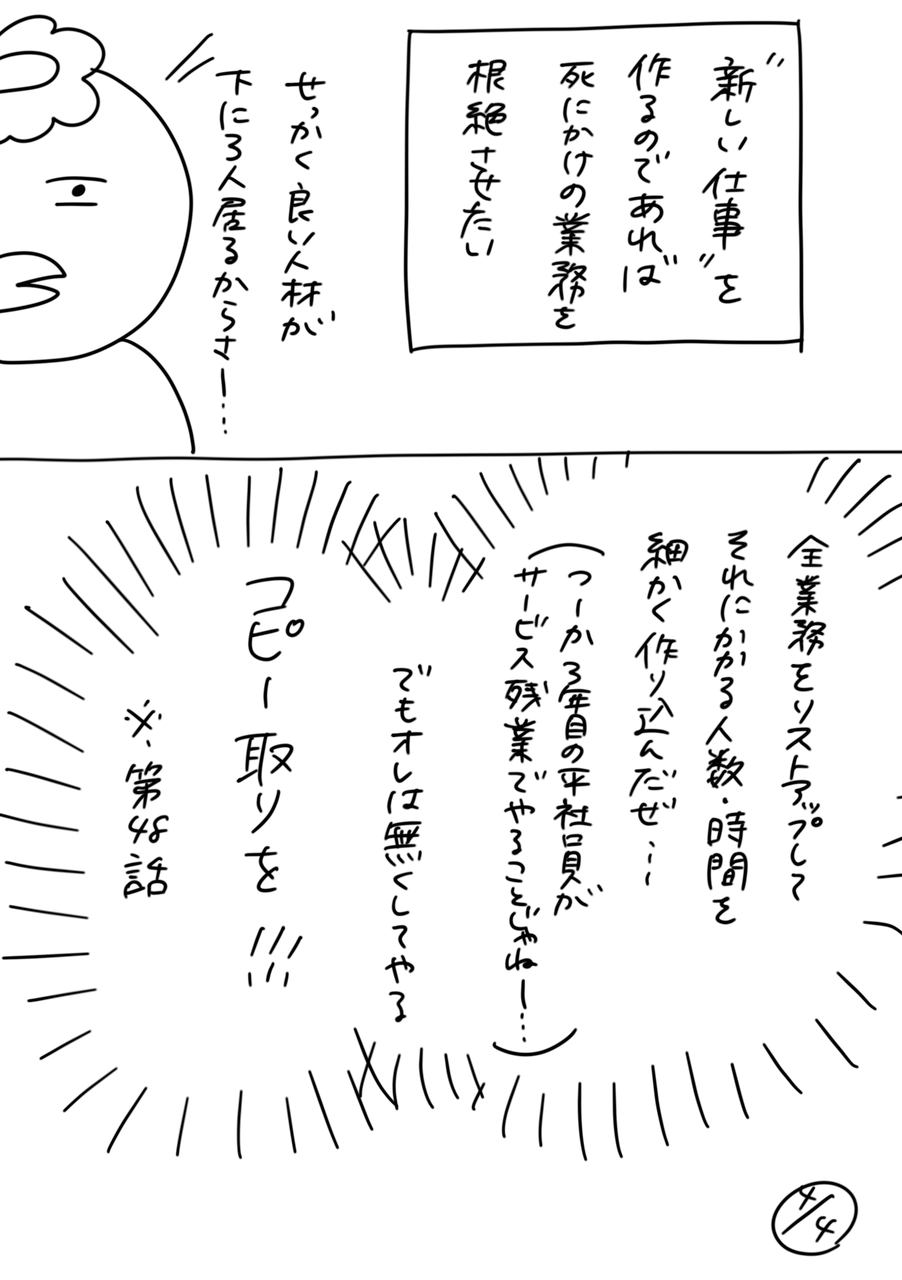 “新しい仕事”を
作るのであれば
死にかけの業務を
根絶させたい
せっかく良い人材が
下に3人居るからさー…
全業務をリストアップして
それにかかる人数・時間を
細かく作り込んだぜ…
（つーか3年目の平社員が
サービス残業でやることじゃねー…）
でもオレは無くしてやる
コピー取りを!!!
※第48話
4/4